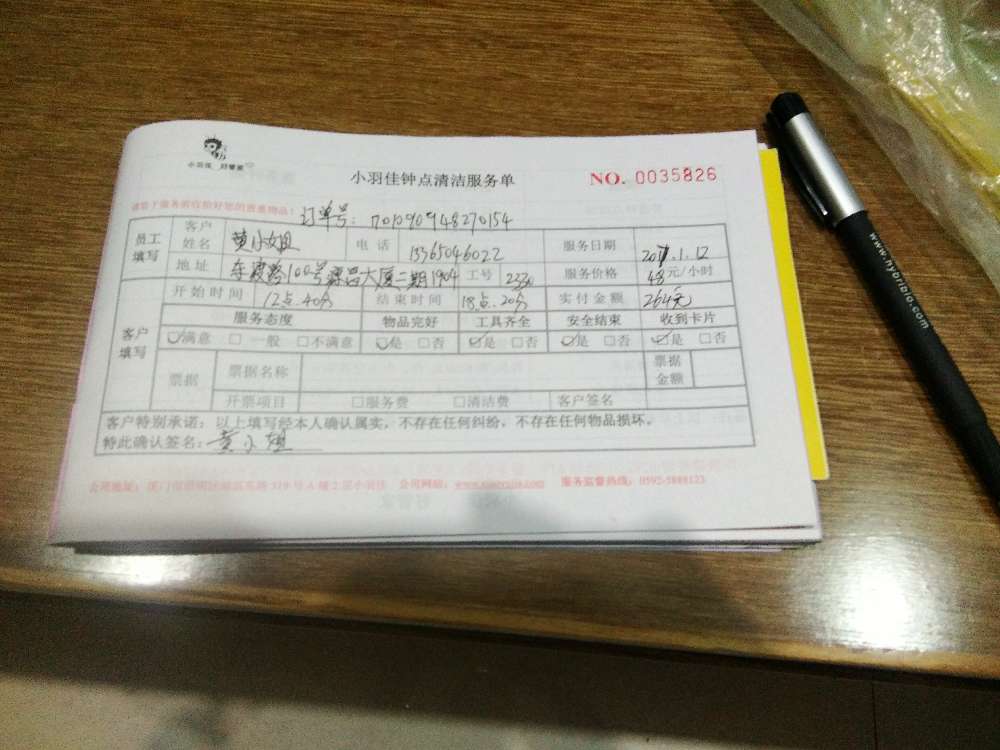 小羽佳 好管家
小羽佳钟点清洁服务单 NO. 0035826
订单号: 701090948270154
员工填写 客户姓名 黄小姐 电话 13365046022 服务日期 2017.1.12
地址 100号 大厦二期1904 工号 2330 服务价格 48元/小时
开始时间 12点40分 结束时间 18点20分 实付金额 264元
客户填写 服务态度 物品完好 工具齐全 安全结束 收到卡片
满意 一般 不满意 是 否 是 否 是 否 是 否
票据 票据名称 票据金额
开票项目 服务费 清洁费 客户签名
客户特别承诺：以上填写经本人确认属实，不存在任何纠纷，不存在任何物品损坏。
特此确认签名: 黄小姐
公司地址: 319号A幢2层小羽佳 公司网站: 服务监督热线: 0592-5888123
www.hybribio.com